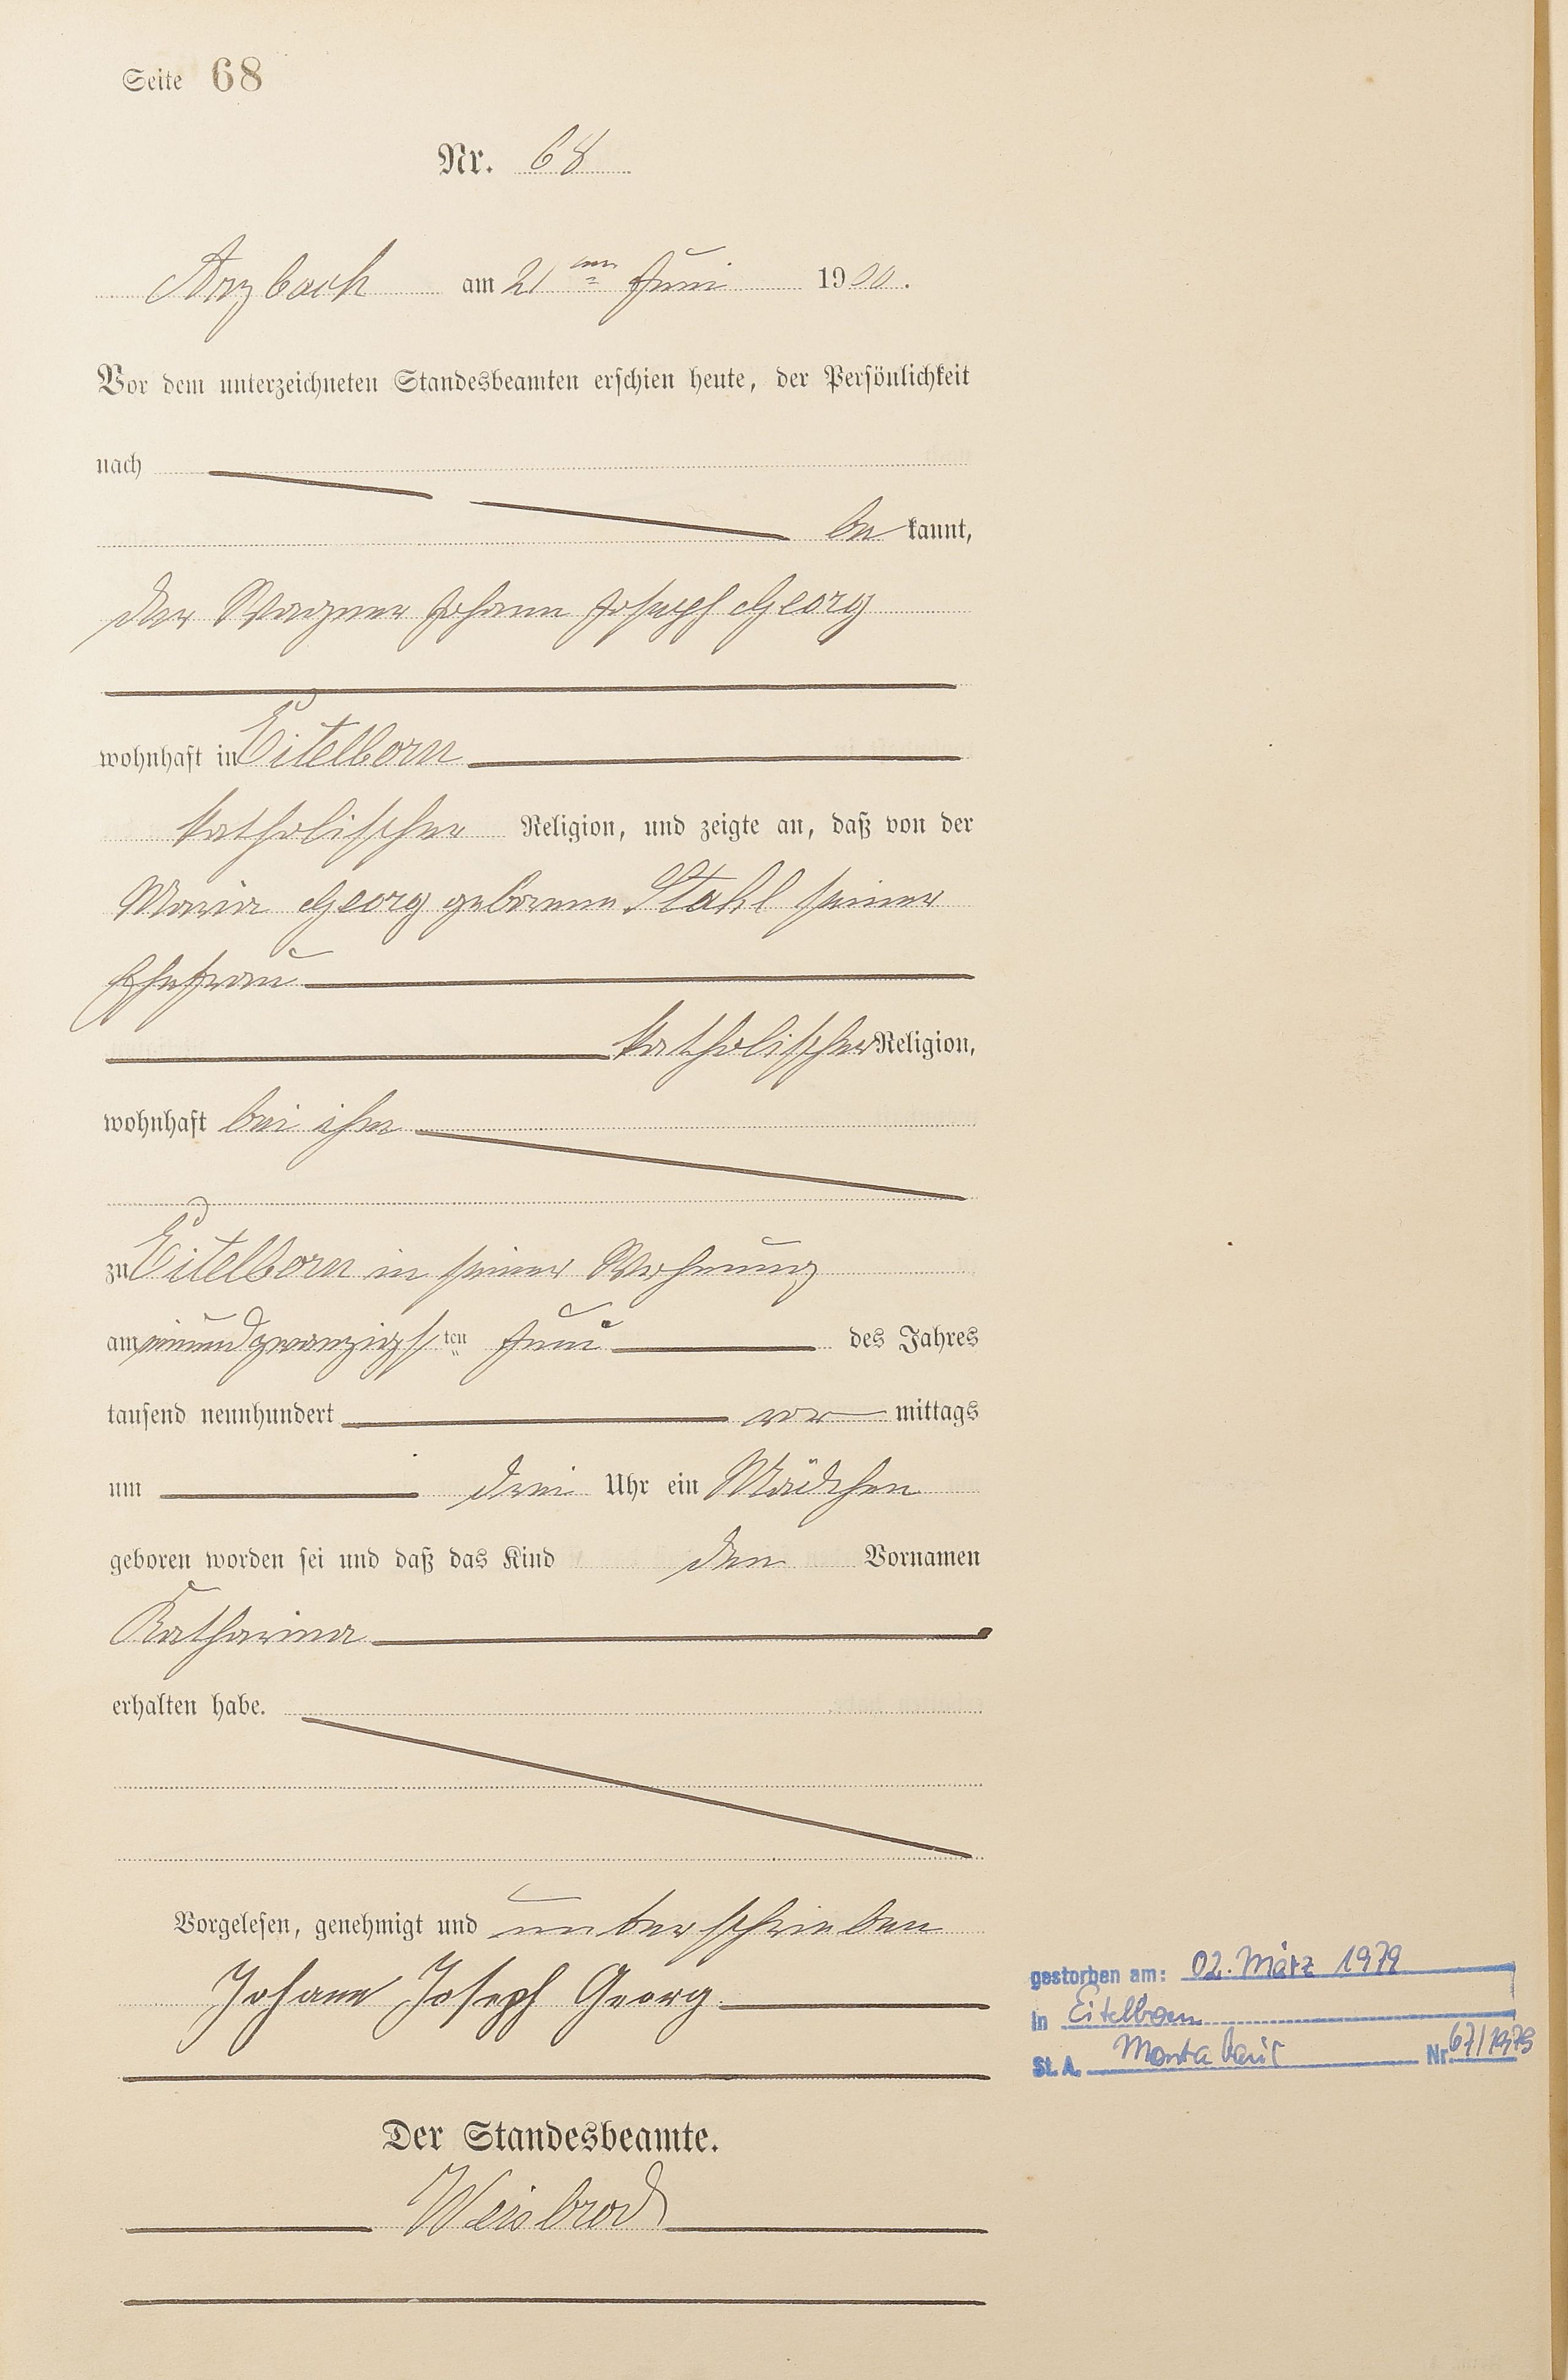 Seite 68
Nr. 68
Arzbach am 21ten Juni 1900.
Vor dem unterzeichneten Standesbeamten erschien heute, der Persönlichkeit
nach
be kannt,
der Wagner Johann Joseph Georg
wohnhaft in Eitelborn
katholischer Religion, und zeigte an, daß von der
Maria Georg geborene Stahl seiner
Ehefrau
katholischer Religion,
wohnhaft bei ihm
zu Eitelborn in seiner Wohnung
am einundzwanzigsten Juni des Jahres
tausend neunhundert vor mittags
um drei Uhr ein Mädchen
geboren worden sei und daß das Kind den Vornamen
Katharina
erhalten habe.
Vorgelesen, genehmigt und unterschrieben
Johann Joseph Georg
gestorben am: 02. März 1979
in Eitelborn
St. A. Montabaur Nr 67/1979
Der Standesbeamte.
Weisbrod